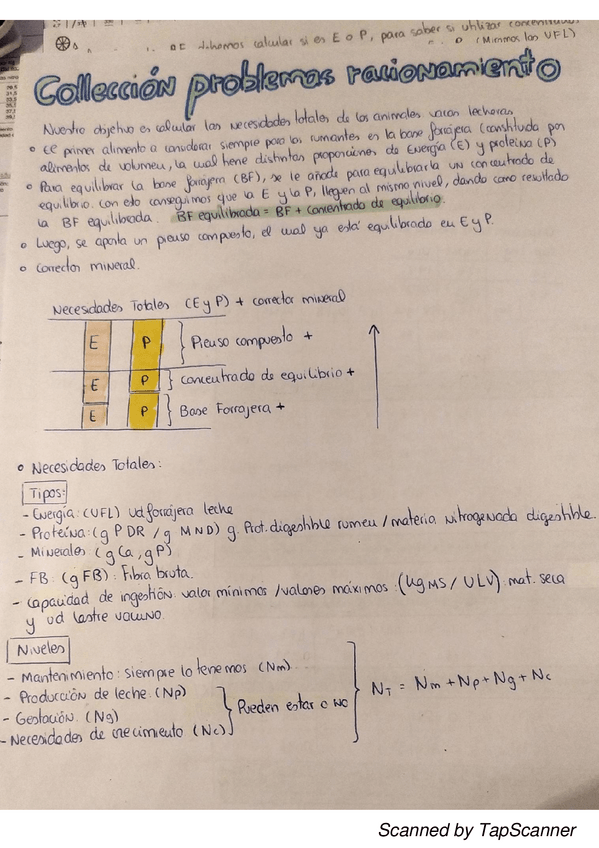 debemos calcular si es E o P, para saber si utilizar
(Miramos las UFL)
Collección problemas racionamiento
Nuestro objetivo es calcular las necesidades totales de los animales vacas lecheras
• El primer alimento a considerar siempre para los rumiantes es la base forrajera (constituida por
alimentos de volumen, la cual tiene distintas proporciones de Energía (E) y proteína (P)
• Para equilibrar la base forrajera (BF), se le añade para equilibrarla un concentrado de
equilibrio. Con esto conseguimos que la E y la P, lleguen al mismo nivel, dando como resultado
la BF equilibrada. BF equilibrada = BF + concentrado de equilibrio.
• Luego, se aporta un pienso compuesto, el cual ya está equilibrado en E y P.
• Corrector mineral.
Necesidades Totales (E y P) + corrector mineral
E P } Pienso compuesto +
E P } Concentrado de equilibrio +
E P } Base Forrajera +
• Necesidades Totales:
Tipos:
- Energía: (UFL) Ud forrajera leche
- Proteína: (g PDR / g MND) g. Prot. digestible rumen / materia Nitrogenada digestible.
- Minerales (g Ca, g P)
- FB: (g FB): Fibra bruta.
- Capacidad de ingestión: valor mínimos / valores máximos: (kg MS / ULV): mat. seca
y ud lastre vacuno.
Niveles
- Mantenimiento: siempre lo tenemos (Nm)
- Producción de leche. (Np)
- Gestación. (Ng)
- Necesidades de crecimiento (Nc)
} Pueden estar o no
} NT = Nm + Np + Ng + Nc
Scanned by TapScanner